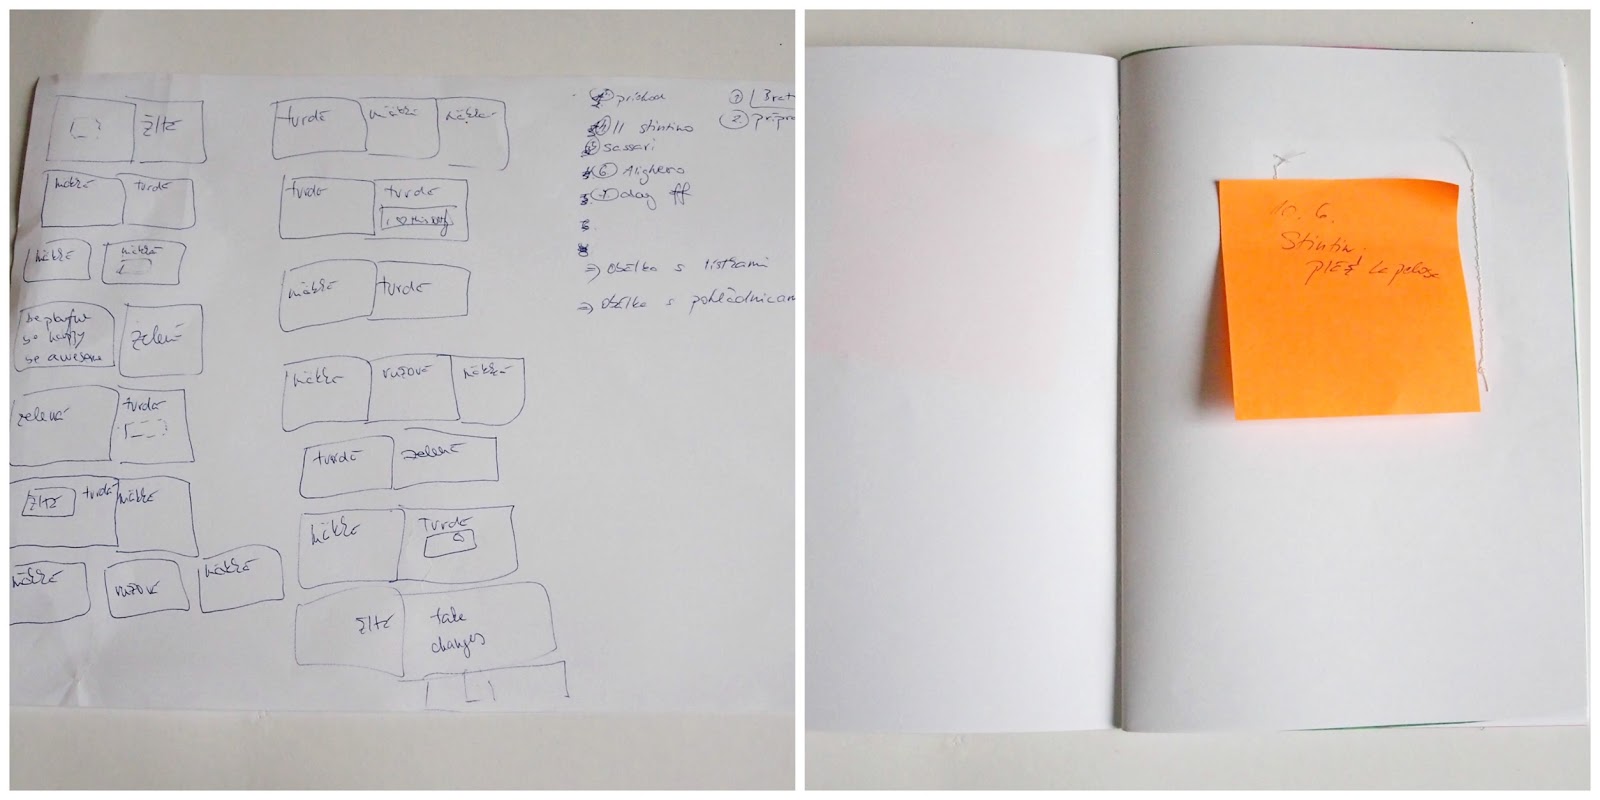 žlté
mäkké tvrdé
mäkké mäkké
be playful
be happy
be awesome
zelené
zelená tvrdé
žlté tvrdé mäkké
mäkké ružové mäkké
tvrdé mäkké mäkké
tvrdé tvrdé
mäkké tvrdé
mäkké ružové mäkké
tvrdé zelené
mäkké tvrdé
žlté take
changes
③ príchod
④ II stintino
⑤ sassari
⑥ Alighero
⑦ day off
8
⇒ obálka s
⇒ obálka s pohľadnicam
① Brat
② pripra
10. 6.
Stintin
pláž La pelosa